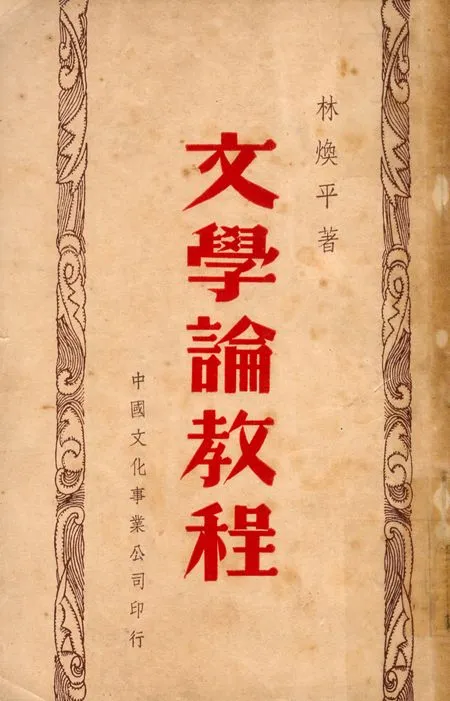 林煥平著
文學論教程
中國文化事業公司印行